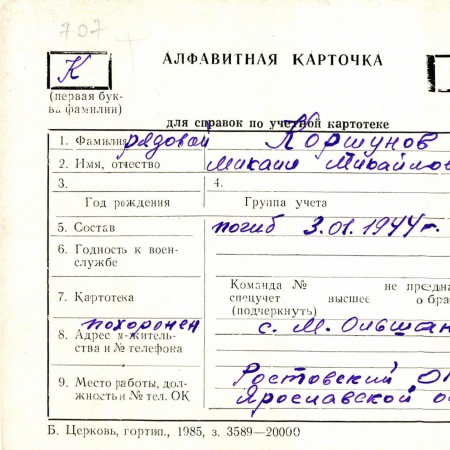 707
К
АЛФАВИТНАЯ КАРТОЧКА
(первая бук-
ва фамилии)
для справок по учетной картотеке
1. Фамилия рядовой Коршунов
2. Имя, отчество Михаил Михайлов
3. 4.
Год рождения Группа учета
5. Состав погиб 3.01.1944г.
6. Годность к воен-
службе
Команда № не предна
7. Картотека спецучет высшее о бра
(подчеркнуть)
похоронен с. М. Ольшан
8. Адрес м-житель-
ства и № телефона
9. Место работы, дол-
жность и № тел. ОК
Ростовский О
Ярославской о
Б. Церковь, гортип., 1985, з. 3589—20000